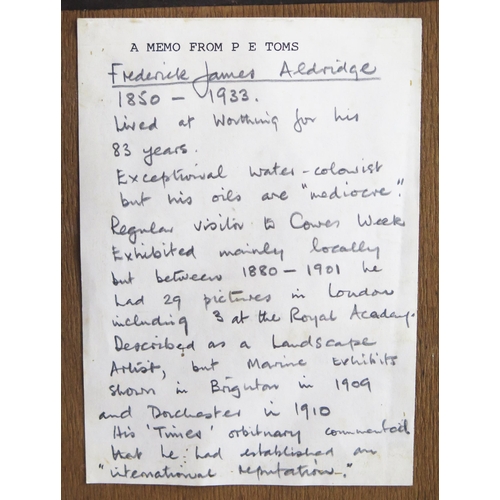 A MEMO FROM P E TOMS
Frederick James Aldridge
1850 - 1933.
Lived at Worthing for his
83 years.
Exceptional water-colourist
but his oils are "mediocre".
Regular visitor to Cowes Week
Exhibited mainly locally
but between 1880 - 1901 he
had 29 pictures in London
including 3 at the Royal Acadamy.
Described as a Landscape
Artist, but Marine Exhibits
shown in Brighton in 1909
and Dorchester in 1910
His 'Times' orbituary commented
that he had established an
"international reputation."